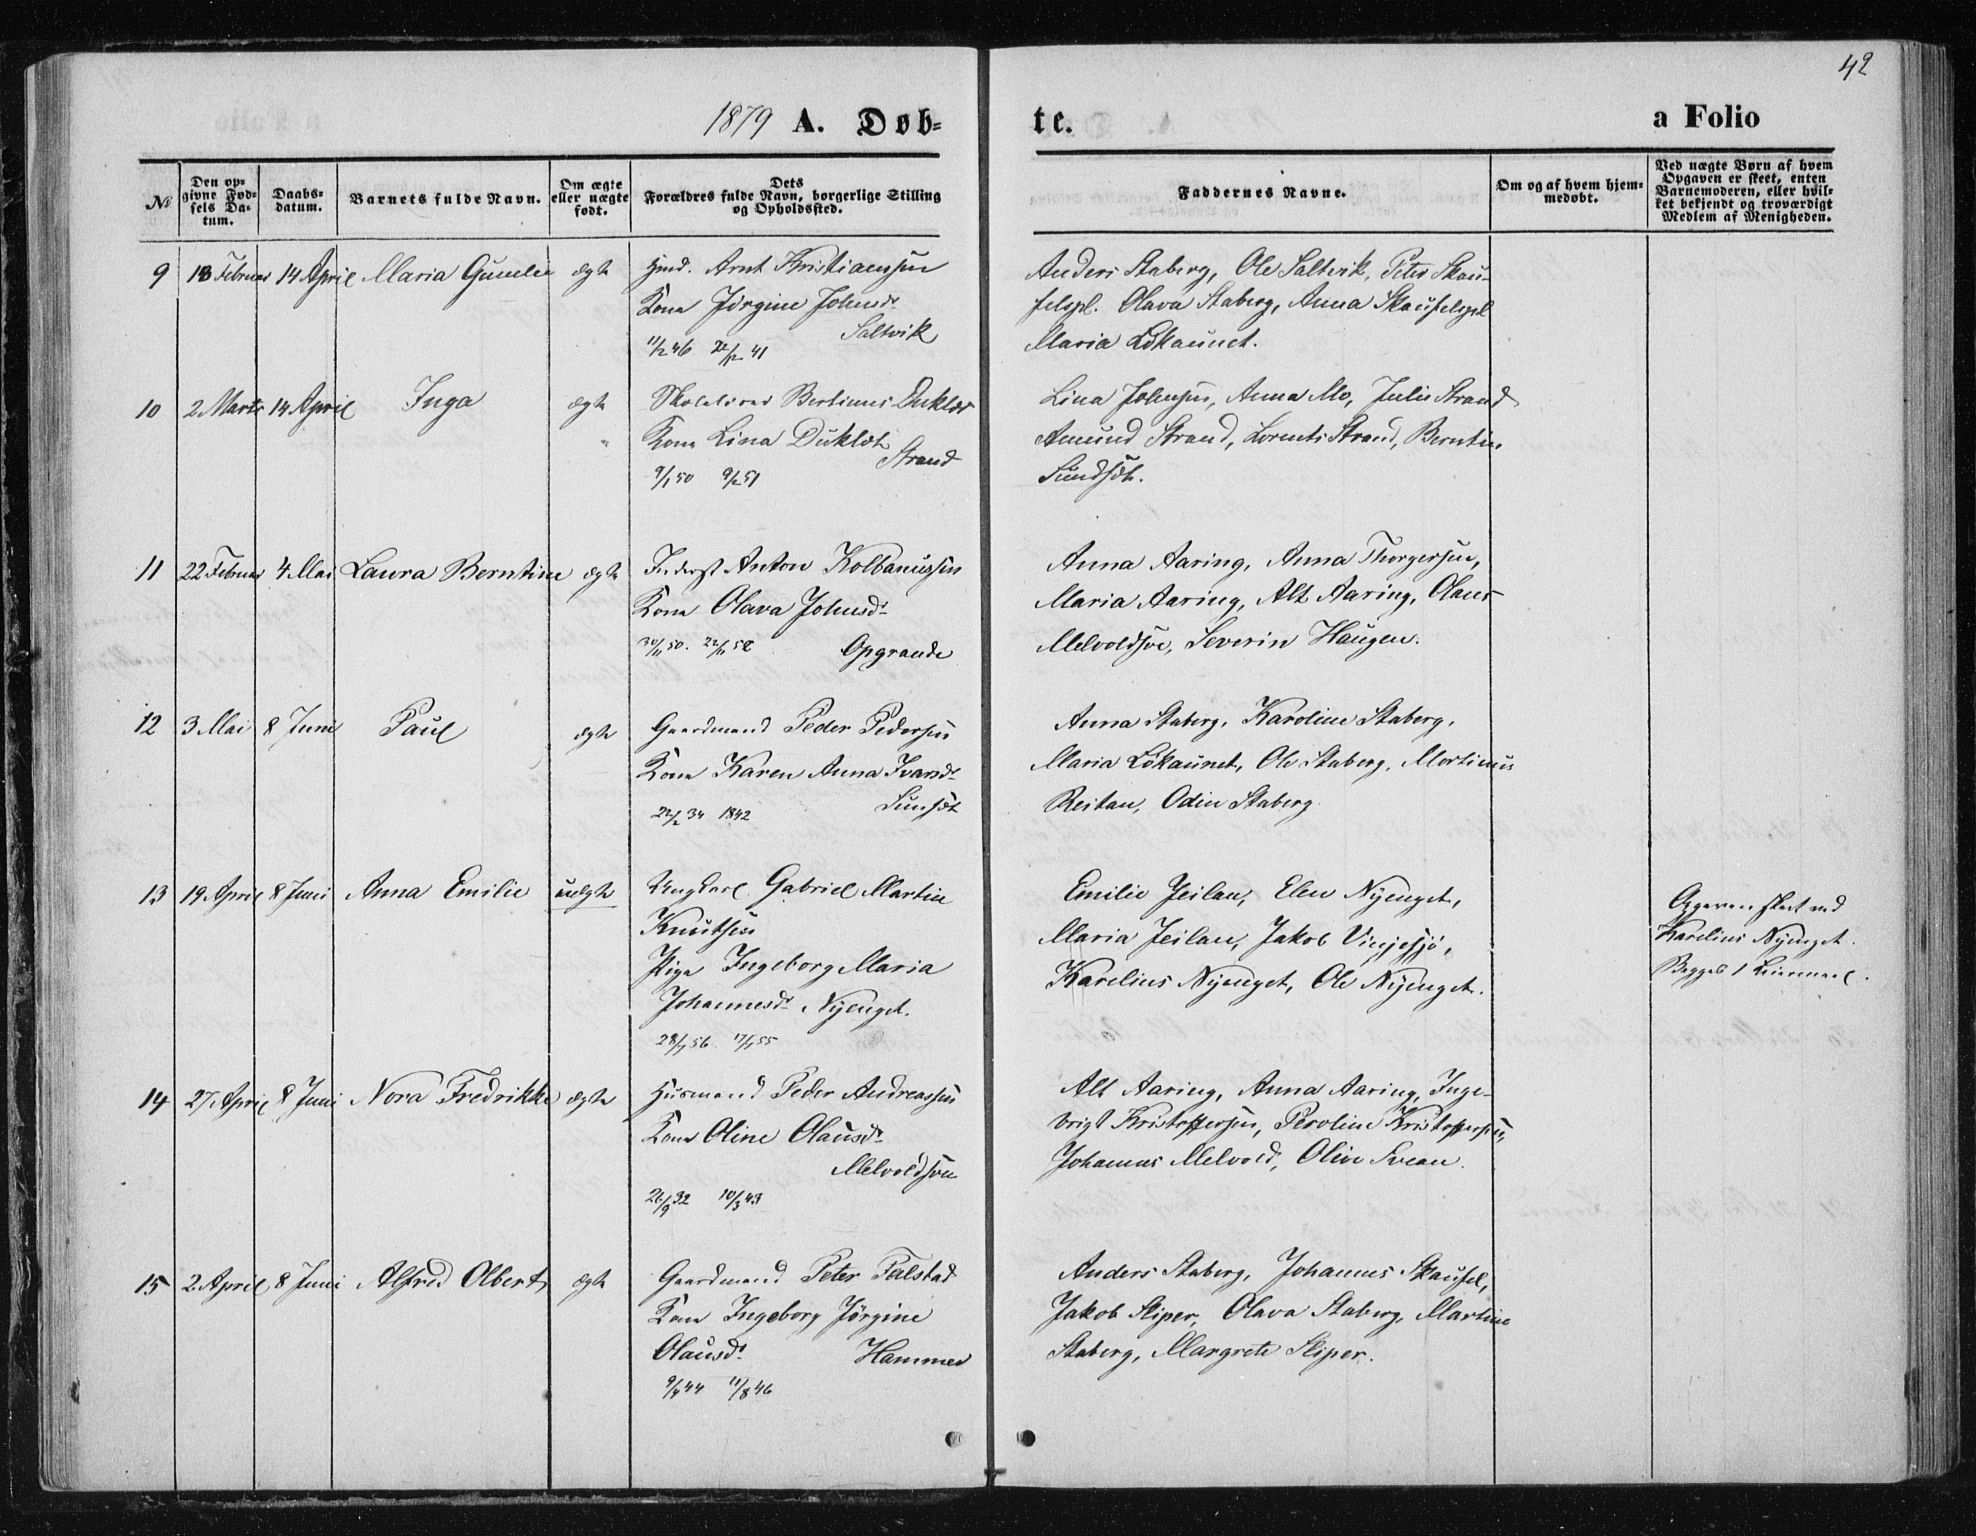 42
1879 A. Døb-
te.
a Folio
№
Den op-
givne Fød-
sels Da-
tum.
Daabs-
datum.
Barnets fulde Navn.
Om ægte
eller nægte
født.
Dets
Forældres fulde Navn, borgerlige Stilling
og Opholdssted.
Faddernes Navne.
Om og af hvem hjem-
medøbt.
Ved nægte Børn af hvem
Opgaven er skeet, enten
Barnemoderen, eller hvil-
ket bekjendt og troværdigt
Medlem af Menigheden.
9 18 Februar 14 April Maria Gunelie ægte Hmd. Arnt Kristiansen
Kone Jørgine Johnsd.
Saltvik
11/2 46 22/12 41
Anders Staberg, Ole Saltvik, Peter Skau-
felspl. Olava Staberg, Anna Skaufelspl.
Maria Løkaunet.
10 2 Marts 14 April Inga ægte Skolelærer Bertinus Duklæt
Kone Lina Duklæt
Strand
9/1 50 9/2 51
Lina Johnsen, Anna Mo, Julie Strand
Amund Strand, Lorents Strand, Berntin
Sundsæt.
11 22 Februar 4 Mai Laura Berntine ægte Inderst Anton Kolbanussen
Kone Olava Johnsd.
Opgrande
30/11 50. 22/11 52
Anna Aaring, Anna Thorgersen,
Maria Aaring, Alt Aaring, Olaus
Melvoldsve, Severin Haugen.
12 3 Mai 8 Juni Paul ægte Gaardmand Peder Pedersen
Kone Karen Anna Ivarsd.
Sunsæt
22/2 34 1842
Anna Staberg, Karoline Staberg,
Maria Løkaunet, Ole Staberg, Mortinus
Reitan, Odin Staberg
13 19 April 8 Juni Anna Emilie uægte Ungkarl Gabriel Martin
Knutsen
Pige Ingeborg Maria
Johannesd. Nyenget.
28/7 56 17/7 55
Emilie Jeilan, Elen Nyenget,
Maria Jeilan, Jakob Vinjesjø,
Karelius Nyenget, Ole Nyenget.
Opgaven skeet ved
Karelius Nyenget.
Begges 1 Leiermaal.
14 27 April 8 Juni Nora Fredrikke ægte Husmand Peder Andreassen
Kone Oline Olausd.
Melvoldsve
26/9 32 10/3 43
Alt Aaring, Anna Aaring, Inge-
brigt Kristoffersen, Peroline Kristoffersen,
Johannes Melvold, Olive Svean.
15 2 April 8 Juni Alfred Olbert ægte Gaardmand Peter Falstad
Kone Ingeborg Jørgine
Olausd. Hammer
9/4 44 11/8 46
Anders Staberg, Johannes Skaufel,
Jakob Sliper, Olava Staberg, Martine
Staberg, Margrete Sliper.